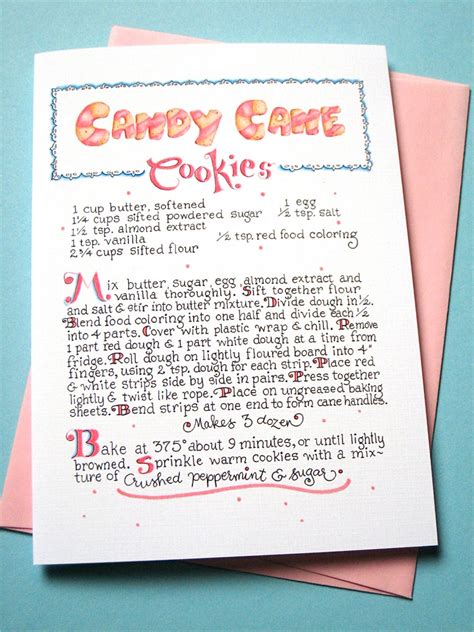 CANDY CANE
Cookies
1 cup butter, softened
1 egg
1¼ cups sifted powdered sugar
½ tsp. salt
1½ tsp. almond extract
1 tsp. vanilla
½ tsp. red food coloring
2¾ cups sifted flour
Mix butter, sugar, egg, almond extract and
vanilla thoroughly. Sift together flour
and salt & stir into butter mixture. Divide dough in ½.
Blend food coloring into one half and divide each ½
into 4 parts. Cover with plastic wrap & chill. Remove
1 part red dough & 1 part white dough at a time from
fridge. Roll dough on lightly floured board into 4"
fingers, using 2 tsp. dough for each strip. Place red
& white strips side by side in pairs. Press together
lightly & twist like rope. Place on ungreased baking
sheets. Bend strips at one end to form cane handles.
Makes 3 dozen
Bake at 375° about 9 minutes, or until lightly
browned. Sprinkle warm cookies with a mix-
ture of Crushed peppermint & sugar